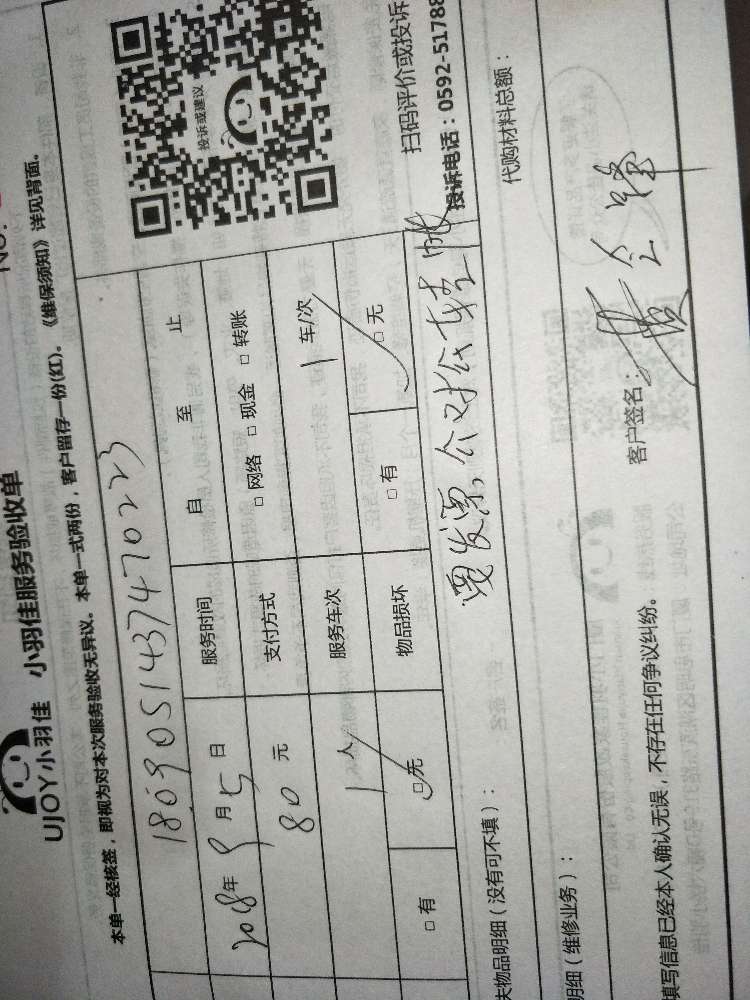 No.
UJOY小羽佳 小羽佳服务验收单
本单一经核签，即视为对本次服务验收无异议。本单一式两份，客户留存一份(红)。《维保须知》详见背面。
180905143747470223
2018年9月5日 服务时间 自 至 止
80元 支付方式 □网络 □现金 □转账
1人 服务车次 1车/次
□有 □无 物品损坏 □有 □无
投诉或建议
扫码评价或投诉
投诉电话：0592-51788
失物品明细（没有可不填）：
要发票，公对公转账
明细（维修业务）：
代购材料总额：
填写信息已经本人确认无误，不存在任何争议纠纷。
客户签名：